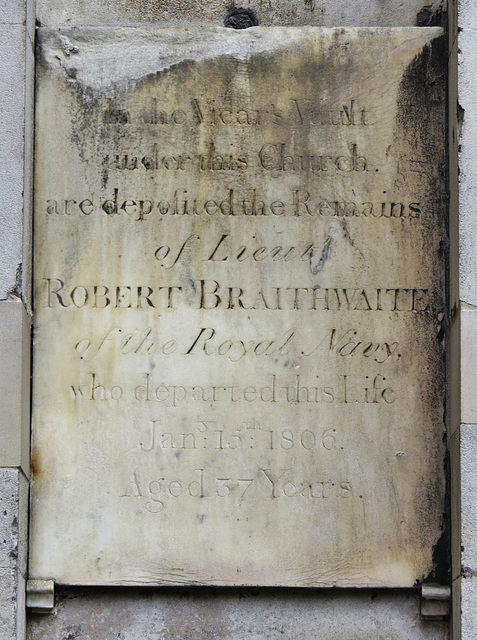 In the Vicar's Vault
under this Church.
are deposited the Remains
of Lieut.
ROBERT BRAITHWAITE
of the Royal Navy,
who departed this Life
Jan.y: 15th: 1806.
Aged 37 Years.